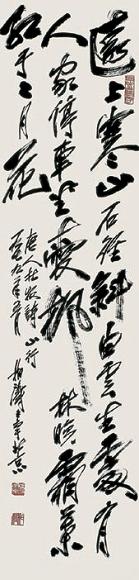 遠上寒山石徑斜白雲生處有
人家停車坐愛楓林晚霜葉
紅于二月花
唐人杜牧詩山行